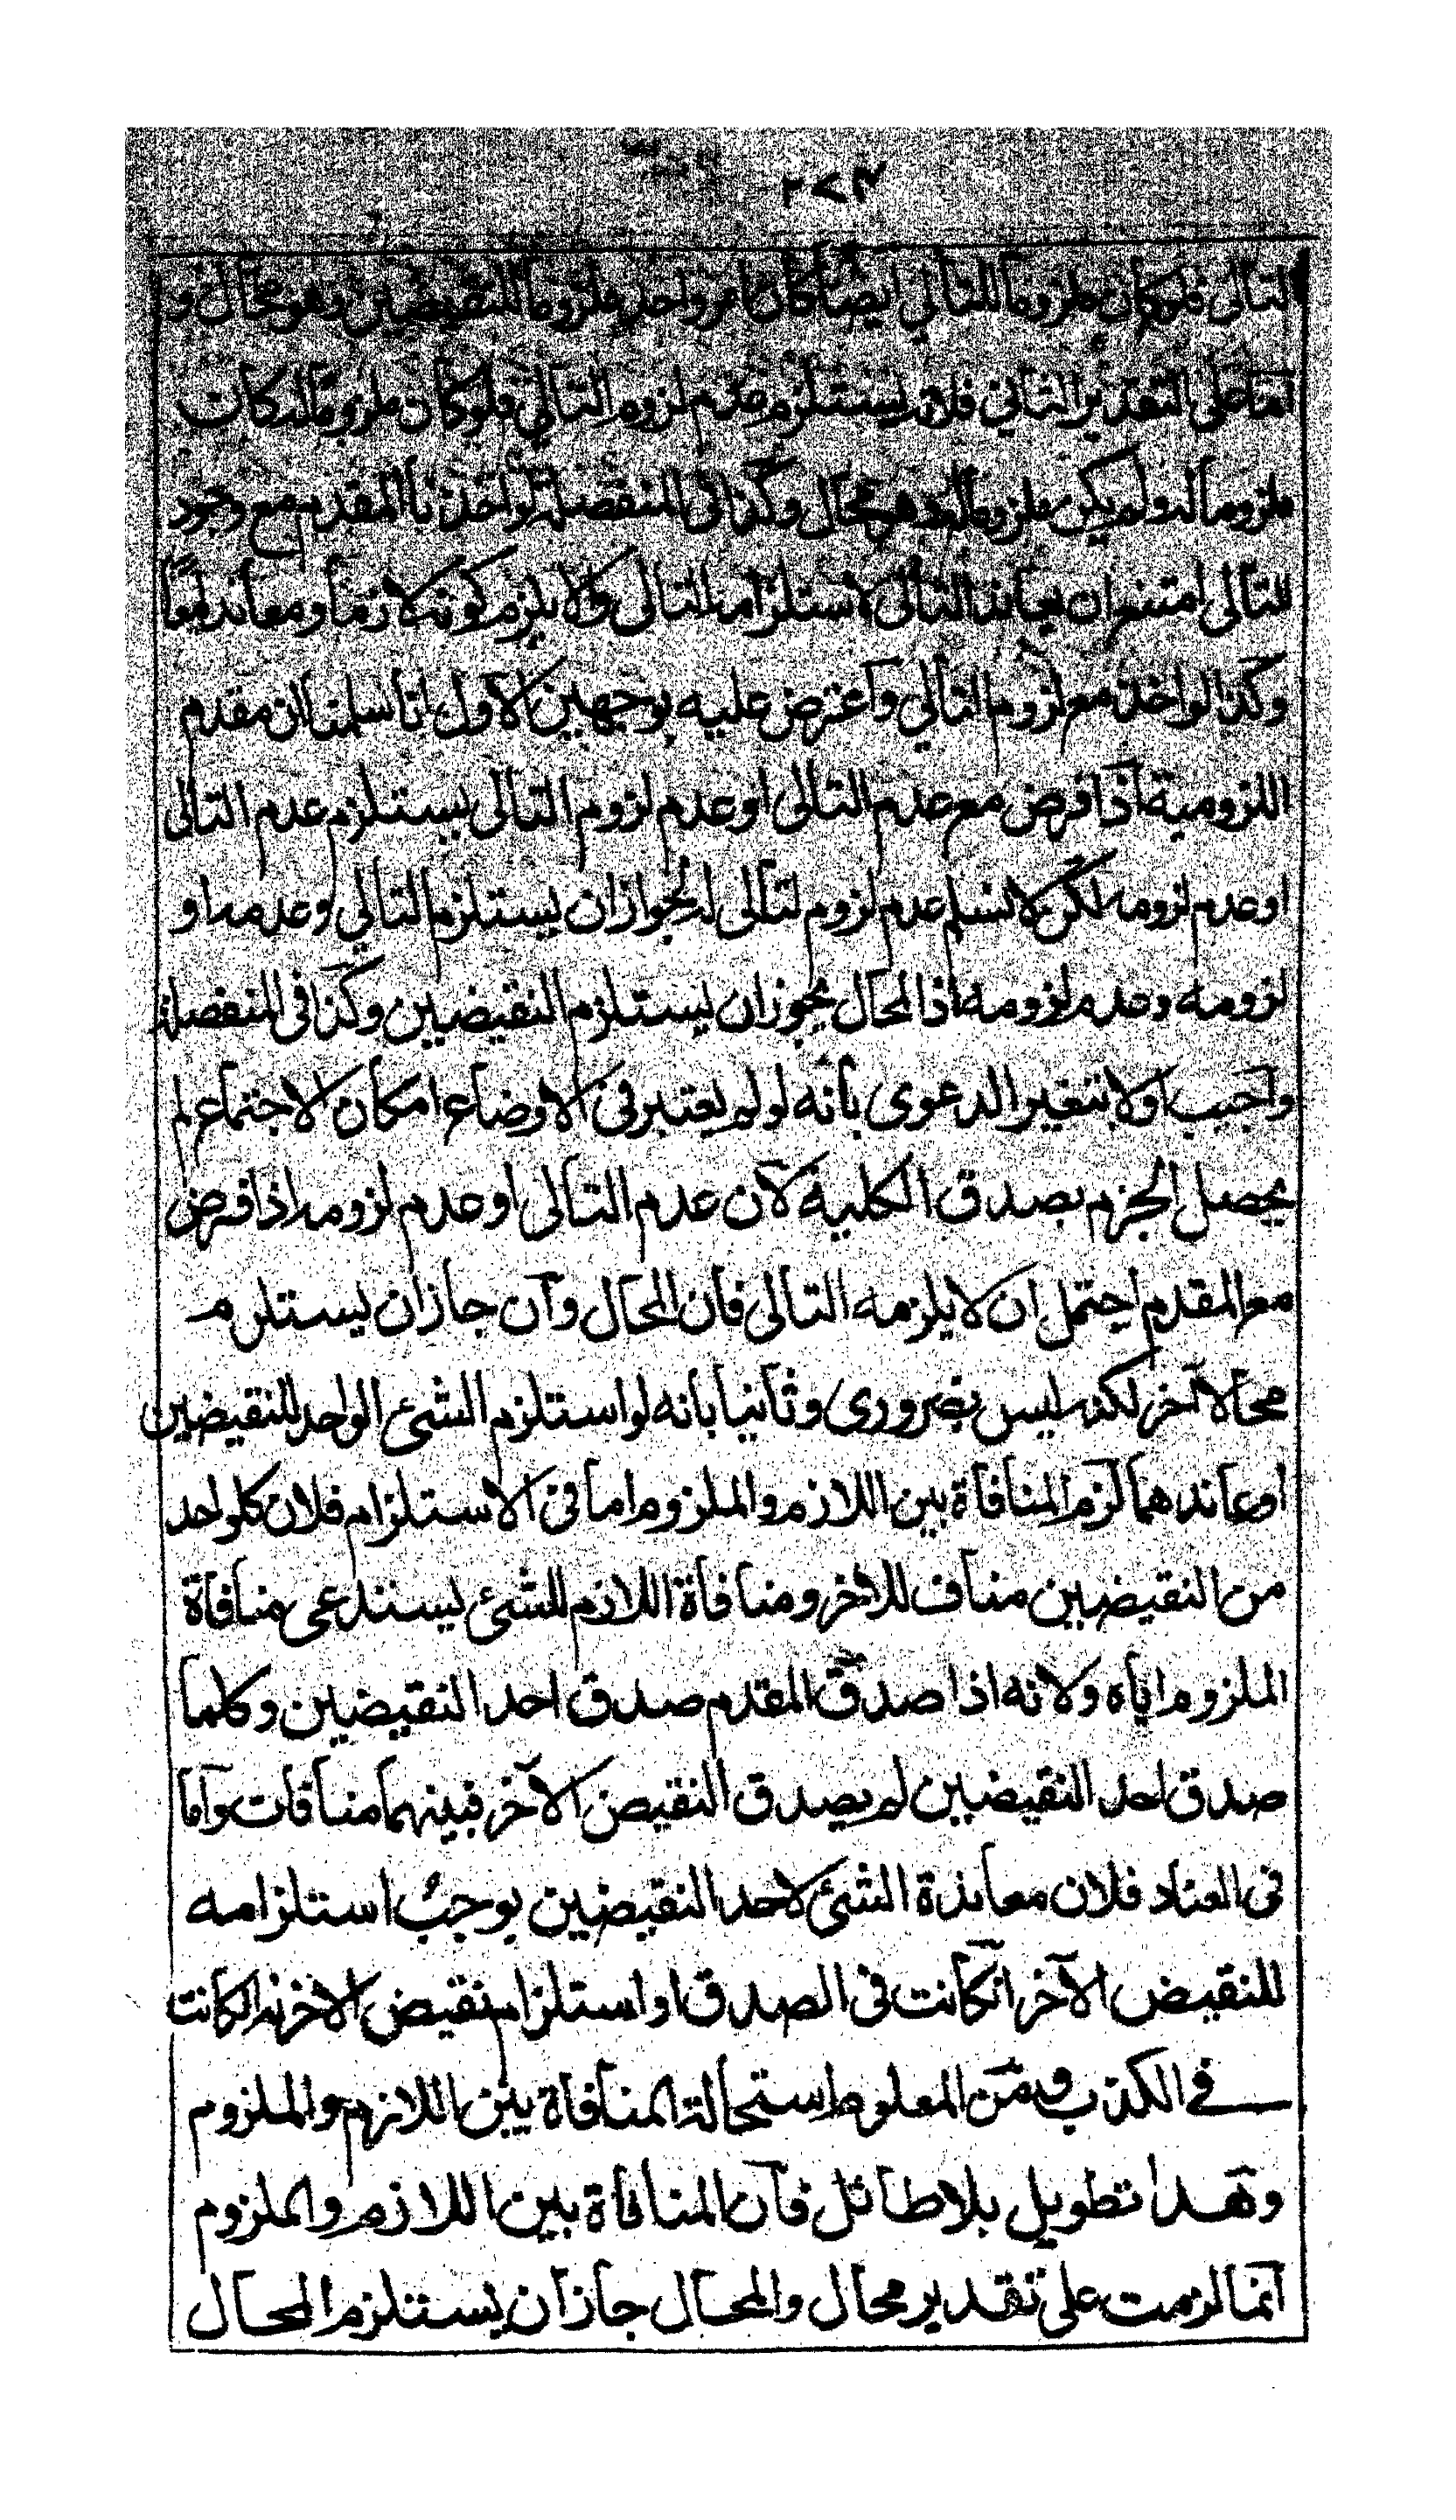 ٢٧٤
التالى فلو كان ملزوما للتالي ايضا كان امر واحد ملزوما للنقيضين وهو محال و
اما على التقدير الثاني فلانه يستلزم عدم لزوم التالي فلو كان ملزوما له كان
ملزوما له ولم يكن ملزوما له هو محال وكذا فى المنفصلة لو اخذنا المقدم مع وجود
للتالى امتنع ان يعاند التالى لاستلزامه التالى والا يلزم كونه لازما ومعاندا معا
وكذا لو اخذ مع لزوم التالي واعترض عليه بوجهين الاول انا سلمنا ان مقدم
اللزومية اذا فرض مع عدم التالى او عدم لزوم التالى يستلزم عدم التالى
او عدم لزومه لكن لا نسلم عدم لزوم لتالى له لجواز ان يستلزم التالي وعدمه او
لزومه وعدم لزومه اذا لمحال يجوز ان يستلزم النقيضين وكذا فى المنفصلة
واجيب اولا بتغير الدعوى بانه لو لم يعتبر فى الاوضاع امكان الاجتماع لم
يحصل الجزم بصدق الكلية لان عدم التالى او عدم لزومه اذا فرض
مع المقدم احتمل ان لا يلزمه التالى فان المحال وان جاز ان يستلزم
محالا آخر لكنه ليس بضروري وثانيا بانه لو استلزم الشئ الواحد للنقيضين
او عاندهما لزم المنافاة بين اللازم والملزوم اما فى الاستلزام فلان كلواحد
من النقيضين مناف للاخر ومنافاة اللازم للشئ يستدعى منافاة
الملزوم اياه ولانه اذا صدق المقدم صدق احد النقيضين وكلما
صدق احد النقيضين لم يصدق النقيض الآخر فبينهما منافات واما
فى العناد فلان معاندة الشئ لاحد النقيضين يوجب استلزامه
للنقيض الآخر انكانت فى الصدق او استلزام نقيض الاخر له انكانت
فى الكذب ومن المعلوم استحالة المنافاة بين اللازم والملزوم
وهذا تطويل بلا طائل فان المنافاة بين اللازم والملزوم
انما لزمت على تقدير محال والمحال جاز ان يستلزم المحال